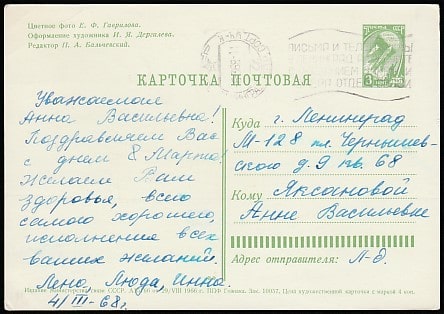 Цветное фото Е. Ф. Гаврилова.
Оформление художника И. Я. Дергалева.
Редактор П. А.
КАРТОЧКА ПОЧТОВАЯ
ПОЧТА СССР
3
Уважаемая
Анна Васильевна!
Поздравляем Вас
с днем 8 Марта!
Желаем Вам
здоровья, всего
самого хорошего,
исполнения всех
ваших желаний.
Лена, Люда, Инна.
4/III-68г.
Куда г. Ленинград
М-128 пл. Чернышев-
ского д. 9 кв. 68
Кому Аксановой
Анне Васильевне
Адрес отправителя: Л-д.
Издание Министерства связи СССР. 20/VIII 1966 г. ППФ Гознака. Зак. Цена художественной карточки с маркой 4 коп.